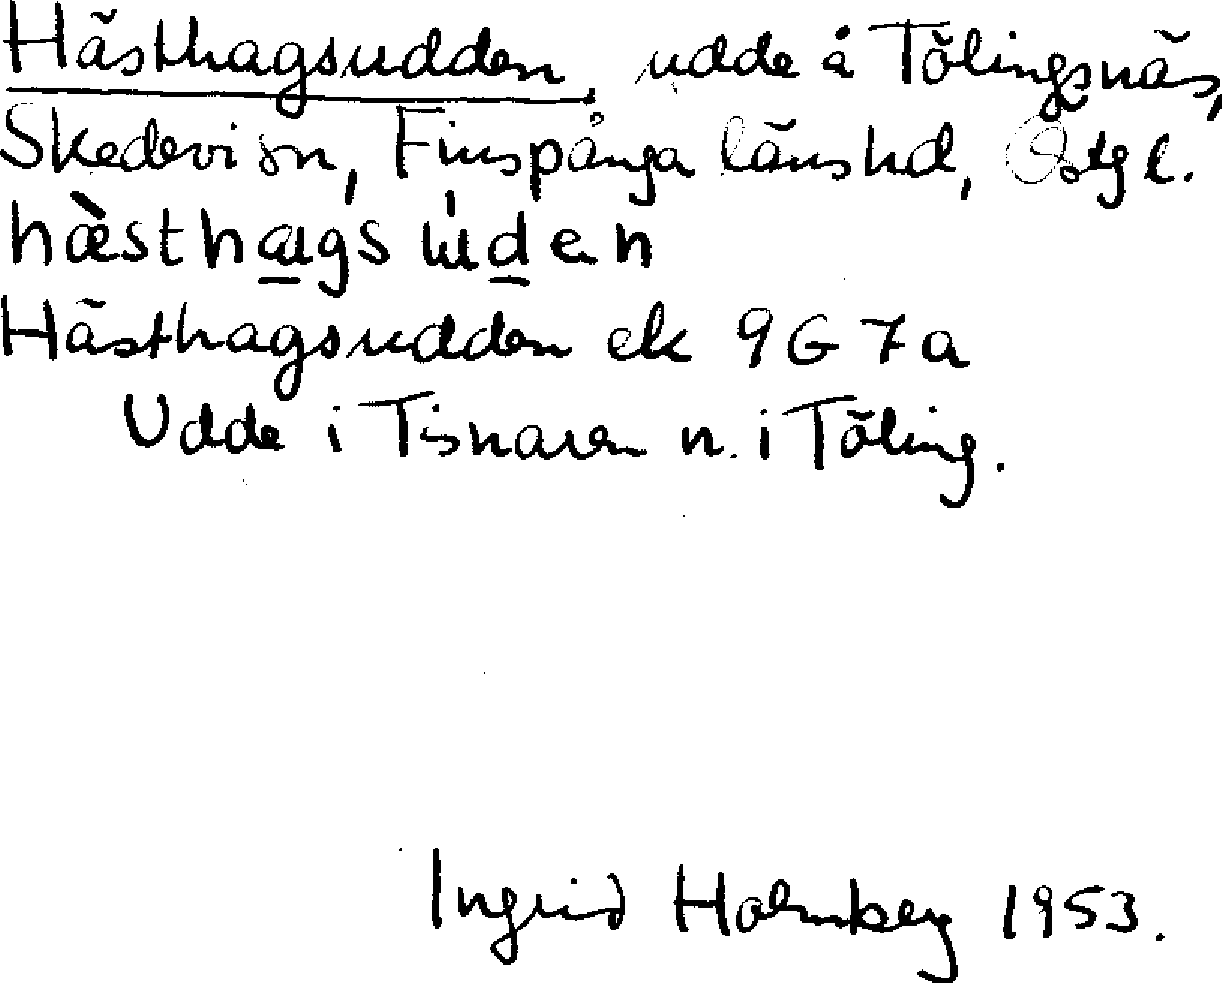 Hästhagsudden udde å Tölingsnäs,
Skedevi sn, Finspånga länshd, Östgl.
hæ̀sthagsùden
Hästhagsudden ek 9G7a
Udde i Tisnaren n. i Töling.
Ingrid Holmberg 1953.